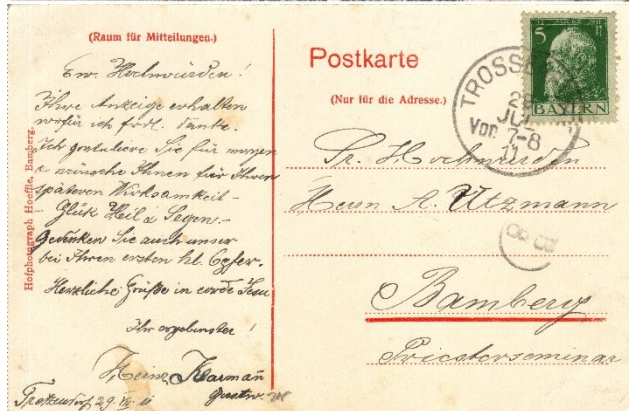 (Raum für Mitteilungen.)
Ew. Hochwürden!
Ihre Anzeige erhalten
wofür ich frdl. danke.
Ich gratuliere Sie für morgen
& wünsche Ihnen für Ihren
späteren Wirksamkeit -
Glük Heil & Segen. -
Gedenken Sie auch unser
bei Ihren ersten hl. Opfer.
Herzliche Grüße in corde Jesu
Ihr ergebenster!
Heinr.
Gastw.
29. VII. 11
Hofphotograph Hoeffle, Bamberg.
Postkarte
(Nur für die Adresse.)
5
BAYERN
JUL
Vor. 7-8
11
Sr. Hochwürden
Herrn A. Utzmann
Bamberg
Priesterseminar